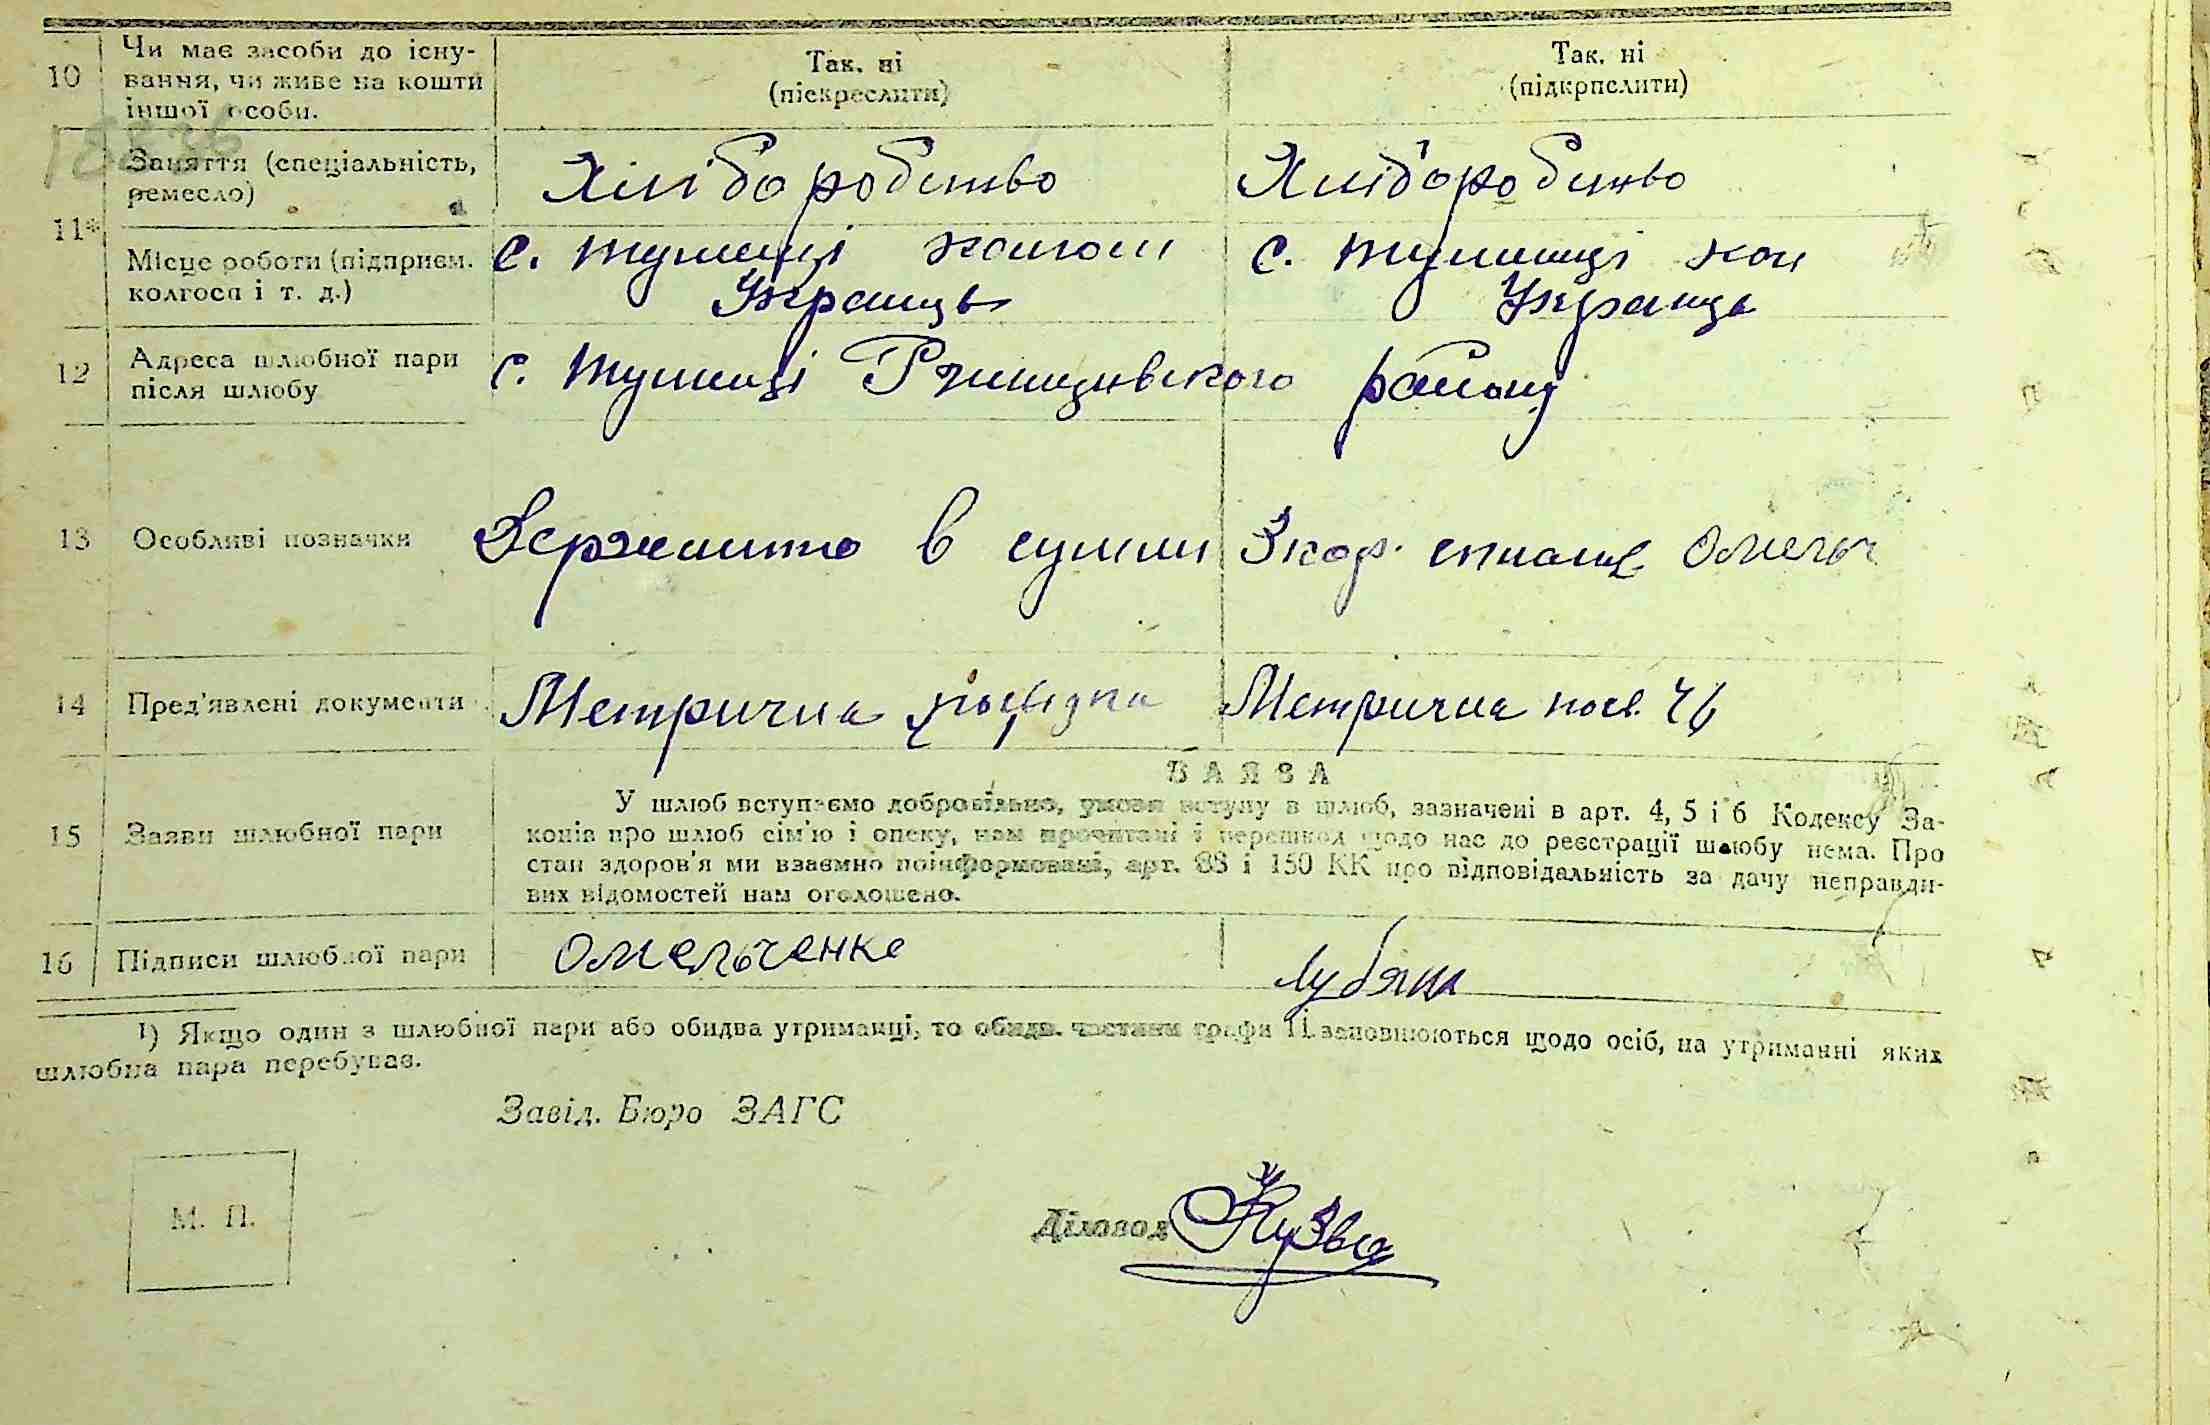 10 Чи має засоби до існу-
вання, чи живе на кошти
іншої особи.
Так. ні
(піскреслити)
Так. ні
(підкрпслити)
11* Заняття (спеціальність,
ремесло)
Хлібо робство
Хлібо робство
Місце роботи (підприєм.
колгосп і т. д.)
с. Тулинці
Українець
с. Тулинці
Українець
12 Адреса шлюбної пари
після шлюбу
с. Тулинці Ржищівського району
13 Особливі позначки
в сумки
14 Пред'явлені документи
Метрична
Метрична посв. 46
15 Заяви шлюбної пари
ЗАЯВА
У шлюб вступаємо добровільно, умови вступу в шлюб, зазначені в арт. 4, 5 і 6 Кодексу За-
конів про шлюб сім'ю і опеку, нам прочитані і перешкод щодо нас до реєстрації шлюбу нема. Про
стан здоров'я ми взаємно поінформовані, арт. 88 і 150 КК про відповідальність за дачу неправди-
вих відомостей нам оголошено.
16 Підписи шлюбної пари
Омельченко
Лубяна
1) Якщо один з шлюбної пари або обидва утриманці, то обидв. частини графи 11 заповнюються щодо осіб, на утриманні яких
шлюбна пара перебуває.
Завід. Бюро ЗАГС
М. П.
Діловод